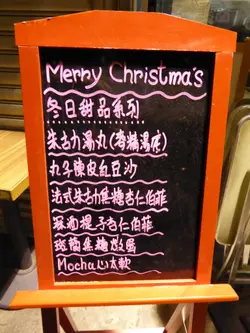 Merry Christma's
冬日甜品系列
朱古力湯丸(杏精湯底)
丸子陳皮紅豆沙
法式朱古力焦糖杏仁伯菲
提子杏仁伯菲
班蘭焦糖燉蛋
Mocha心太軟